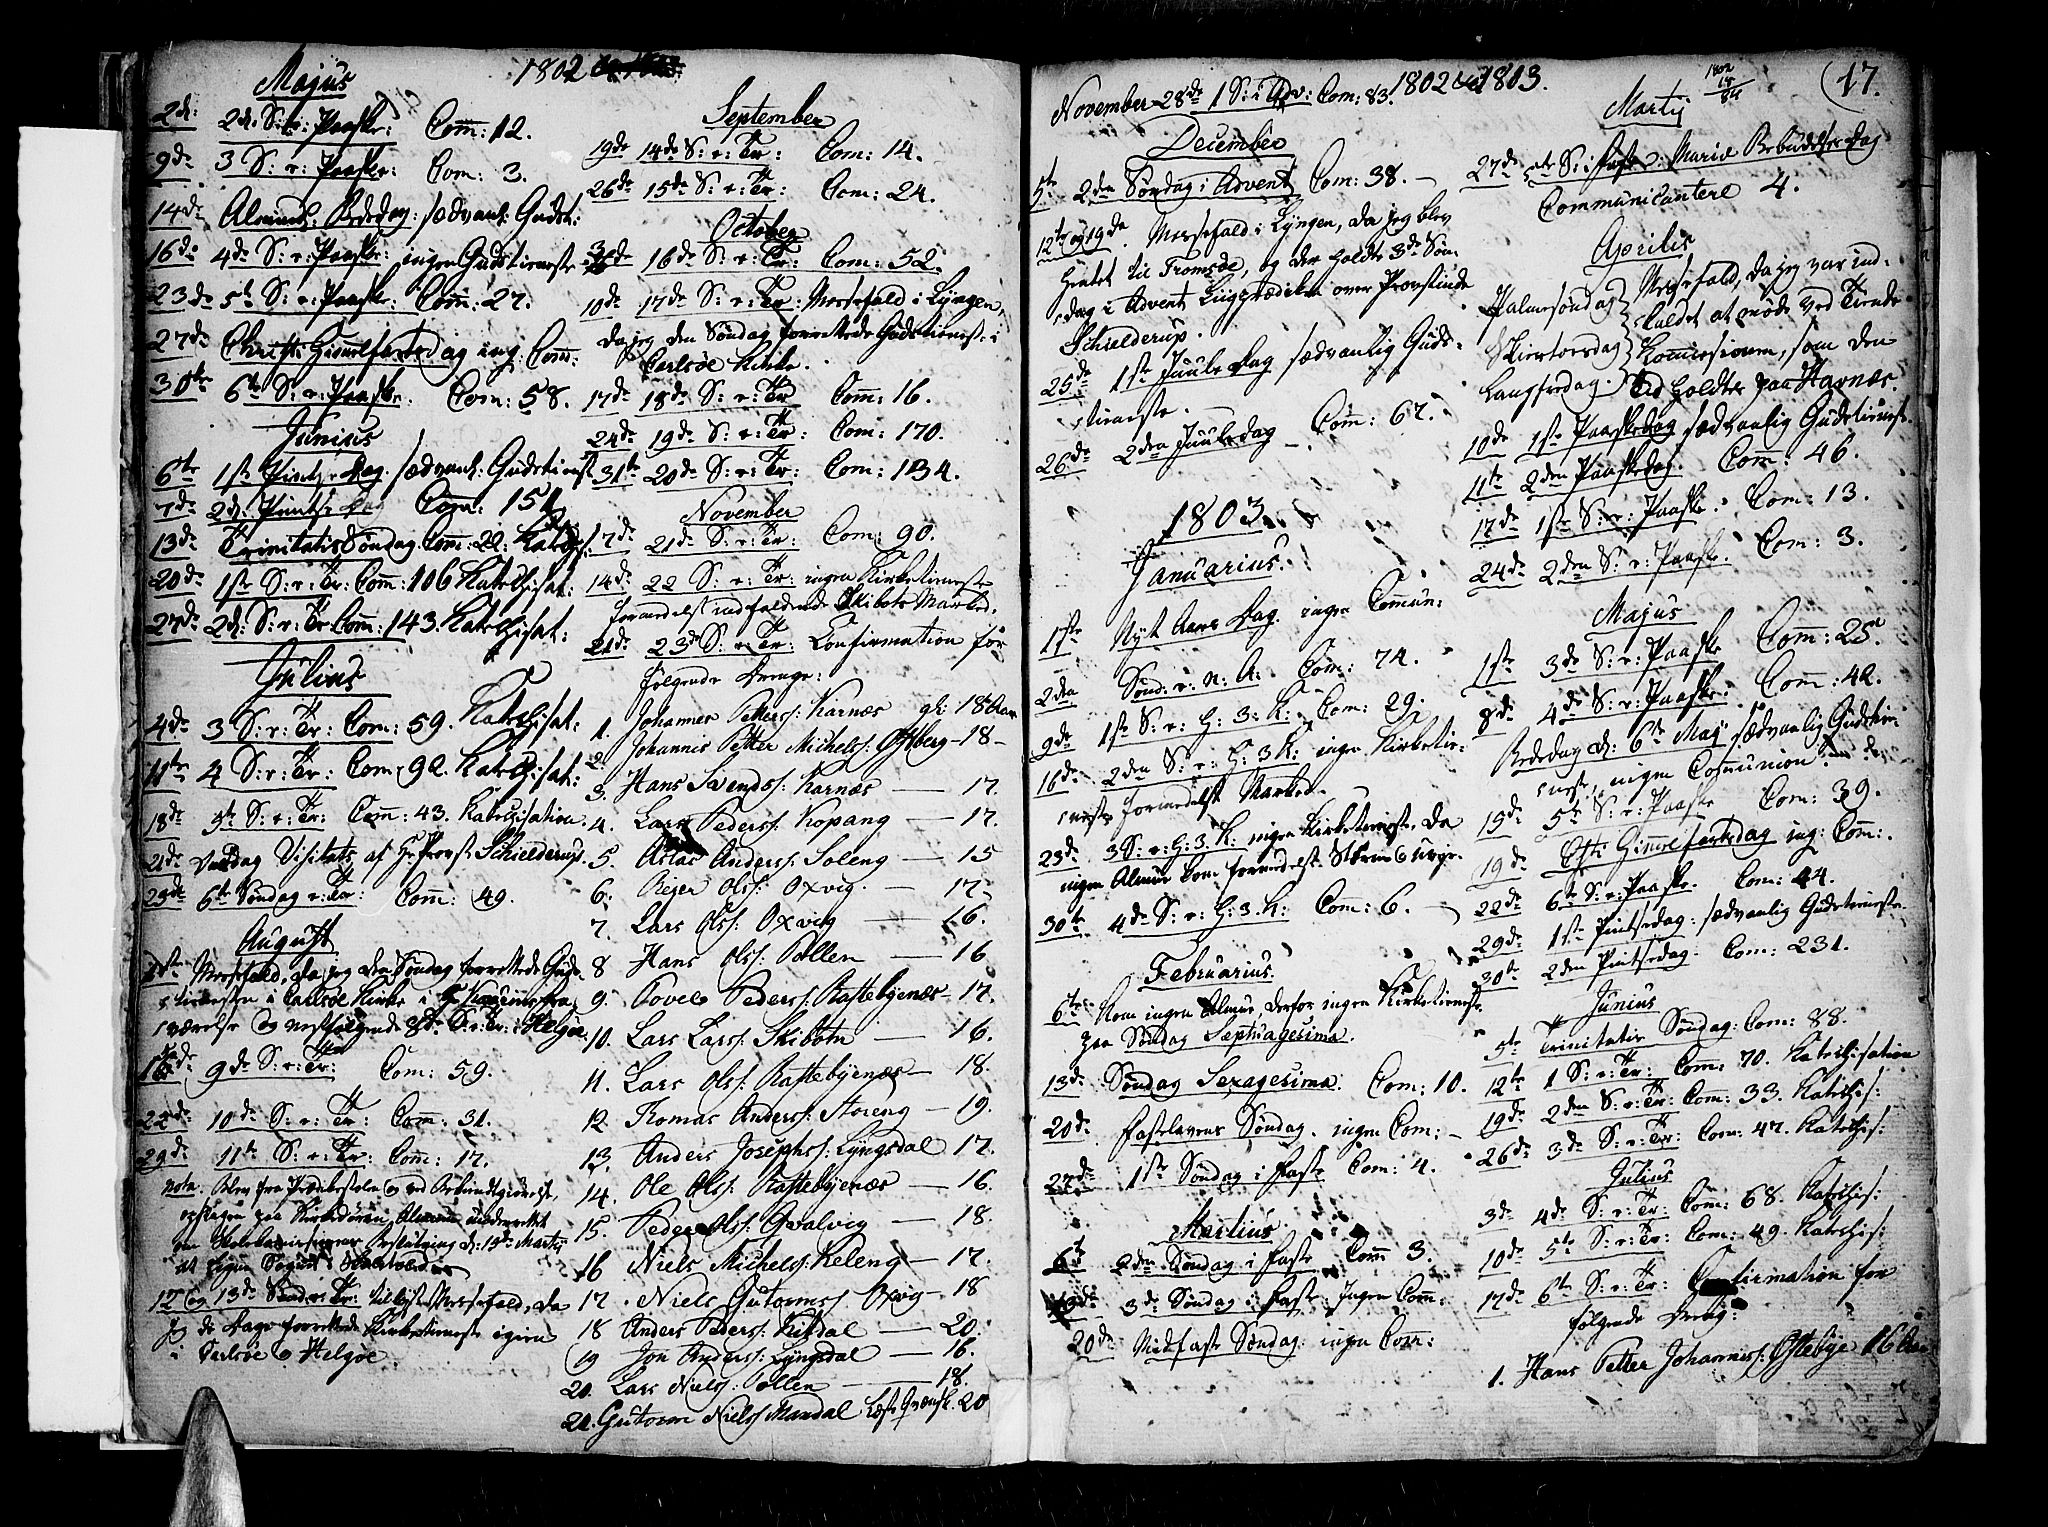 1802
Majus
2d: 2d. S: e: Paaske: Com: 12.
9de 3 S: e: Paaske: Com: 3.
14de Almind: Bededag: sædvanl: Gudst:
16de 4de S: e: Paaske: ingen Gudstieneste
23de 5te S: e: Paaske: Com: 27.
27de Christi Himmelfartsdag ing: Com:
30te 6te S: e: Paaske. Com: 58.
Junius
6te 1ste Pintse Dag. sædvanl: Gudstienest
7de 2d: Pintse Dag Com: 151
13de Trinitatis Søndag Com: 22: Katechis:
20de 1ste S: e: Tr: Com: 106 Katechisat:
27de 2d: S: e: Tr Com: 143. Katechisat:
Julius
4de 3 S: e: Tr: Com: 59. Katechisat:
11te 4 S: e: Tr: Com: 92. Katechisat:
18de 5te S: e: Tr: Com: 43. Katechisation.
21de Onsdag Visitats af Hr Provst Schielderup.
25de 6te Søndag e: Tr: Com: 49.
August
Messefald, da jeg den Søndag forrettede Guds-
tienesten i Carlsøe Kirke i
værelse og nestfølgende 8de S: e: Tr: i Helgøe.
15de 9de S: e: Tr: Com: 59.
22de 10de S: e: Tr: Com: 31.
29de 11te S: e: Tr: Com: 17.
nota. Blev fra Prædikestolen og ved Bekiendtgiørelse,
opslagen paa Kirkedøren, Almuen underrettet
om Skolekommissionens Beslutning d: 19de Martij
12te og 13de Sønd: e: Tr: tilligst Messefald, da
jeg de Dage forrettede Kirketieneste igien
i Carlsøe og Helgøe.
September
19de 14de S: e: Tr: Com: 14.
26de 15de S: e: Tr: Com: 24.
October
3de 16de S: e: Tr: Com: 52.
10de 17de S: e: Tr: Messefald i Lyngen,
da jeg den Søndag forrettede Gudstieneste i
Carlsøe Kirke.
17de 18de S: e: Tr Com: 16.
24de 19de S: e: Tr: Com: 170.
31te 20de S: e: Tr: Com: 134.
November
7de 21de S: e: Tr: Com: 90.
14de 22 S: e: Tr: ingen Kirketieneste
formedelst indfaldende Skibotn Marked.
21de 23de S: e: Tr: Confirmation for
følgende Drenge:
1. Johannes Petters: Karnæs gl: 18 Aar
2. Johannis Petter Michels: Østberg - 18 -
3. Hans Svends: Karnæs — 17.
4. Lars Peders: Kopang — 17.
5. Aslac Anders: Soleng — 15
6. Reier Ols: Oxvig — 17.
7. Lars Ols: Oxvig — 16.
8 Hans Ols: Pollen — 16
9. Povel Peders: Rastebyenæs - 17.
10. Lars Lars: Skibotn — 16.
11. Lars Ols: Rastebyenæs — 18.
12. Thomas Anders: Storeng — 19.
13. Anders Josephs: Lyngsdal 17.
14. Ole Ols: Rastebyenæs — 16.
15. Peder Ols: Qvalvig — 18.
16 Niels Michels: Keleng — 17.
17. Niels Gutorms: Oxvig — 18
18 Anders Peders: Kitdal — 20.
19 Jon Anders: Lyngsdal — 16.
20. Lars Niels: Pollen — 18.
21. Gutorm Niels: Mandal Læste Qvænsk. 20
1802 &1803.
1802
18
84
17.
November 28de 1 S: i Adv: Com: 83.
December
5te 2den Søndag i Advent Com: 38. —
12te og 19de. Messefald i Lyngen, da jeg blev
hentet til Tromsøe, og der holdte 3de Søn-
dag i Advent Liigprædiken over Provstinde
Schielderup.
25de 1ste Juule Dag sædvanlig Guds-
tieneste.
26de 2den Juuledag — Com: 67.
1803.
Januarius.
1ste Nyt Aars Dag. ingen Commun:
2den Sønd: e: n: A: Com: 74.
9de 1ste S: e: H: 3: K: Com: 29.
16de 2den S: e: H: 3 K: ingen Kirketie-
neste formedelst Marked.
23de 3 S: e: H: 3. K: ingen Kirketieneste, da
ingen Almue kom formedelst Storm og
30te 4de S: e: H: 3. K: Com: 6. —
Februarius.
6te Kom ingen Almue, derfor ingen Kirketieneste
paa Søndag Septuagesima.
13de Søndag Sexagesima. Com: 10.
20de Fastelavens Søndag. ingen Com: —
27de 1ste Søndag i Faste Com: 4.
Martius
6te 2den Søndag i Faste Com: 3.
13de 3de Søndag i Faste. Ingen Com:
20de Midfaste Søndag: ingen Com:
Martij
27de 5te S: i Faste: Mariæ Bebudelses Dag
Communicantere 4.
Aprilis
Palmesøndag Messefald, da jeg var ind-
Skiertorsdag kaldet at møde ved Tiende
Langfredag. Komissionen, som den
Tid holdtes paa Havnæs.
10de 1ste Paaskedag sædvanlig Gudstienest.
11te 2den Paaskedag. Com: 46.
17de 1ste S: e: Paaske. Com: 13.
24de 2den S: e: Paaske. Com: 3.
Majus
1ste 3de S: e: Paaske Com: 25
8de 4de S: e: Paaske. Com: 42.
Bededag d: 6te Maij sædvanlig Gudstie-
neste, ingen Communion
15de 5te S: e: Paaske Com: 39.
19de Christi Himmelfartsdag ing: Com:
22de 6te S: e: Paaske. Com: 44.
29de 1ste Pintsedag. sædvanlig Gudstieneste.
30te 2den Pintsedag. Com: 231.
Junius
5te Trinitatis Søndag: Com: 88.
12te 1 S: e: Tr: Com: 70. Katechisation
19de 2den S: e: Tr: Com: 33. Katechis:
26de 3de S: e: Tr: Com: 47. Katechis:
Julius
3de 4de S: e: Tr: Com: 68. Katechis:
10de 5te S: e: Tr: Com: 49. Katechis:
17de 6te S: e: Tr: Confirmation for
følgende Dreng:
1. Hans Petter Johannes: Østebye 16 Aar